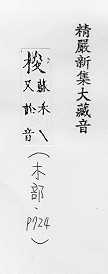 精嚴新集大藏音
梭
蘇禾
又
音
(木部·P724)